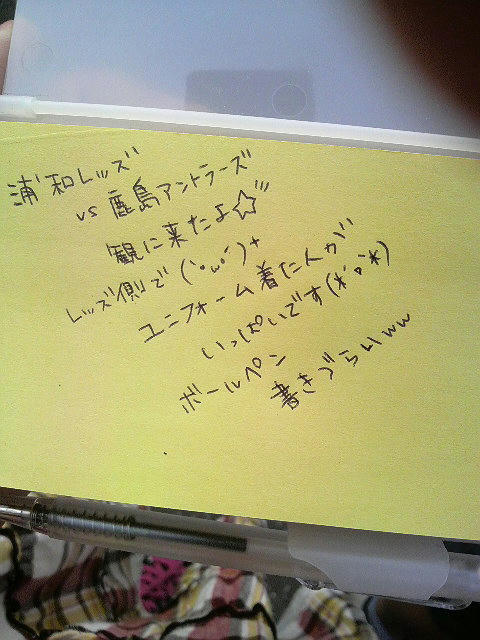 浦和レッズ
vs 鹿島アントラーズ
観に来たよ☆
レッズ側で(`･ω･´)+
ユニフォーム着た人が
いっぱいです(*´ｐ`*)
ボールペン
書きづらいww